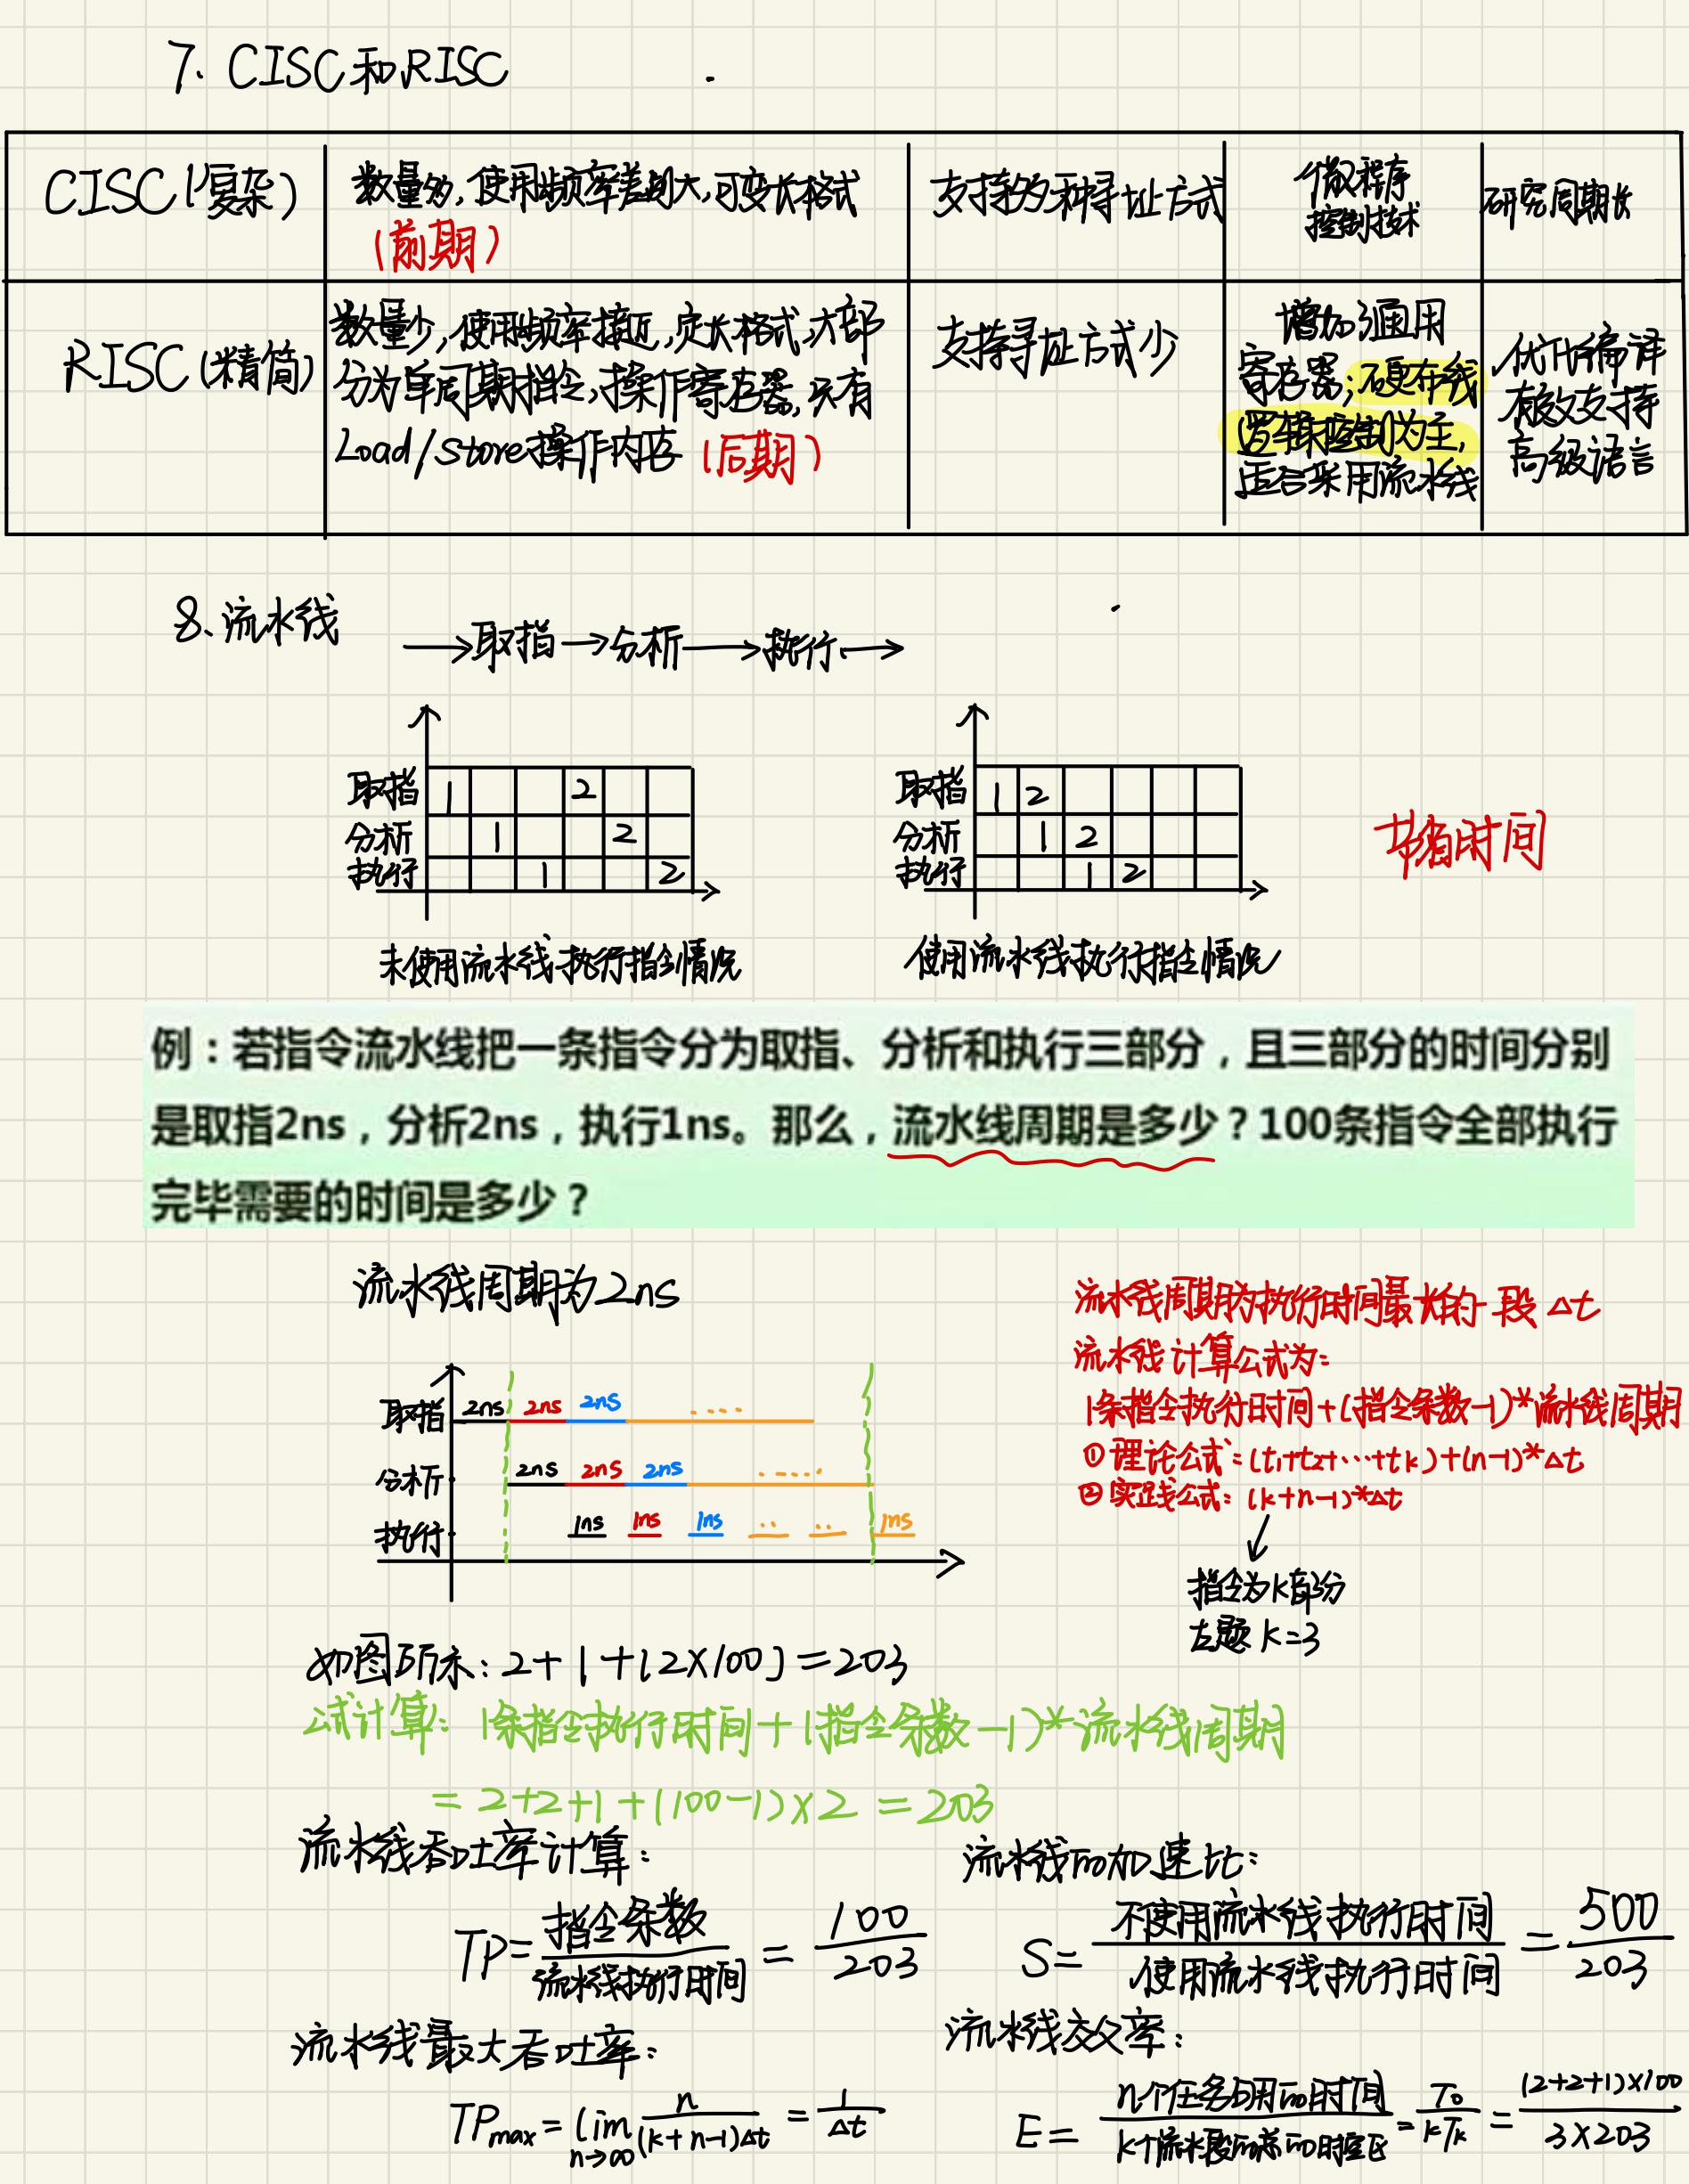 7. CISC和RISC
CISC(复杂)
数量多,使用频率差别大,可变长格式
(前期)
支持多种寻址方式
微程序
控制技术
研究周期长
RISC(精简)
数量少,使用频率接近,定长格式,大部
分为单周期指令,操作寄存器,只有
Load/Store操作内存 (后期)
支持寻址方式少
增加了通用
寄存器;硬布线
逻辑控制为主,
适合采用流水线
优化编译
有效支持
高级语言
8.流水线
→取指→分析→执行→
取指 1 2
分析 1 2
执行 1 2
未使用流水线执行指令情况
取指 1 2
分析 1 2
执行 1 2
使用流水线执行指令情况
节省时间
例：若指令流水线把一条指令分为取指、分析和执行三部分，且三部分的时间分别
是取指2ns，分析2ns，执行1ns。那么，流水线周期是多少？100条指令全部执行
完毕需要的时间是多少？
流水线周期为2ns
取指 2ns 2ns 2ns ....
分析 2ns 2ns 2ns .....
执行 1ns 1ns 1ns .. .. 1ns
流水线周期为执行时间最长的一段 △t
流水线计算公式为:
1条指令执行时间+(指令条数-1)*流水线周期
①理论公式:(t1+t2+...+tk)+(n-1)*△t
②实践公式:(k+n-1)*△t
指令为k部分
左题 k=3
如图所示:2+1+(2×100)=203
公式计算:1条指令执行时间+(指令条数-1)*流水线周期
=2+2+1+(100-1)×2=203
流水线吞吐率计算:
TP=指令条数/流水线执行时间=100/203
流水线的加速比:
S=不使用流水线执行时间/使用流水线执行时间=500/203
流水线最大吞吐率:
TPmax=lim n→∞ n/(k+n-1)△t=1/△t
流水线效率:
E=n个任务占用的时间/k个流水段的总的时空区=T0/kTk=(2+2+1)×100/3×203